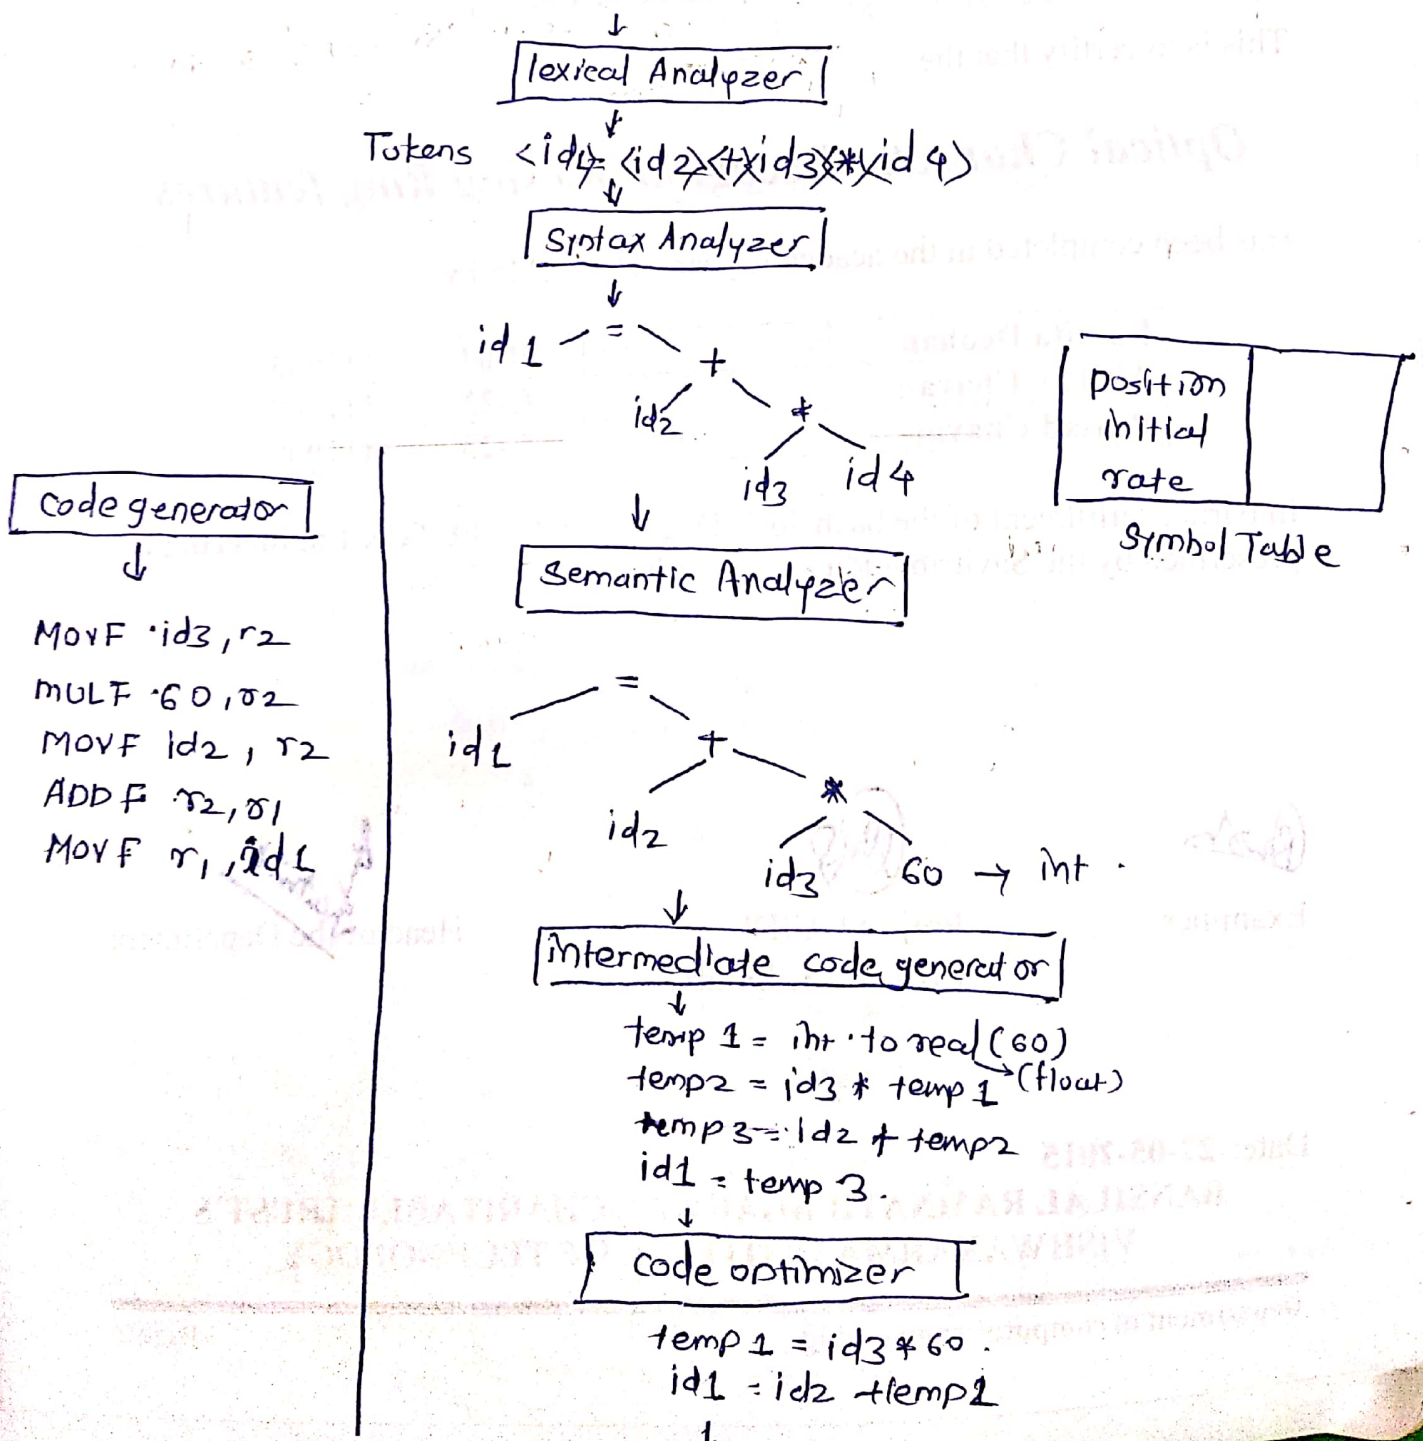 lexical Analyzer
Tokens <id1>= <id2><+><id3><*><id4>
Syntax Analyzer
=
id1
+
id2
*
id3 id4
position
initial
rate
Symbol Table
Semantic Analyzer
=
id1
+
id2
*
id3 60 → int
intermediate code generator
temp 1 = int to real (60)
(float)
temp2 = id3 * temp 1
temp 3 = id2 + temp2
id1 = temp 3.
code optimizer
temp 1 = id3 * 60.
id1 = id2 + temp1
code generator
MOVF id3, r2
MULF 60, r2
MOVF id2, r2
ADDF r2, r1
MOVF r1, id1